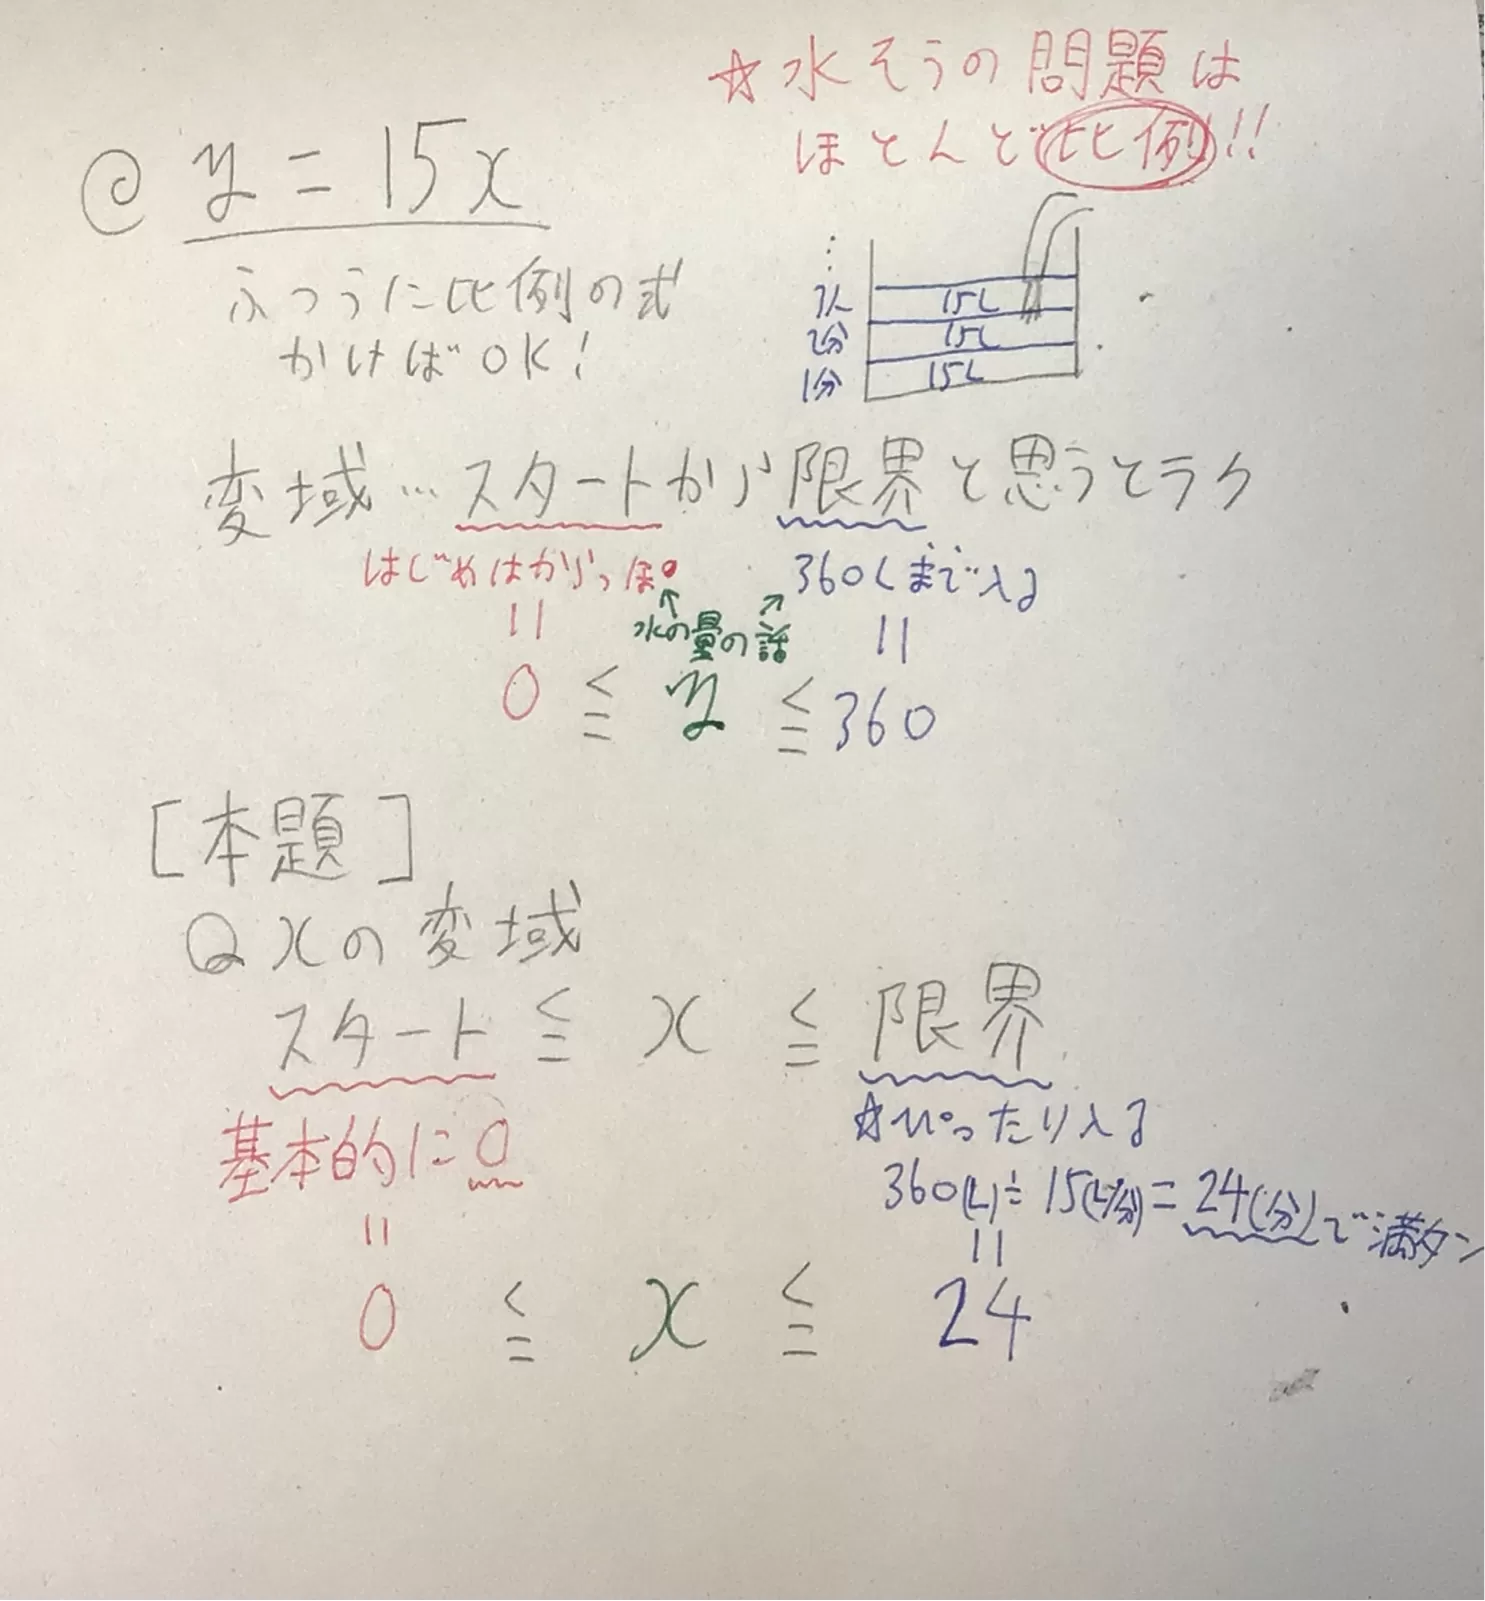 ☆水そうの問題は
ほとんど比例!!
@ y=15x
ふつうに比例の式
かけばOK!
⋮
3分 15L
2分 15L
1分 15L
変域…スタートから限界と思うとラク
はじめはからっぽ 360Lまで入る
水の量の話
0≦y≦360
[本題]
Q xの変域
スタート≦x≦限界
基本的に0
☆ぴったり入る
360(L)÷15(L/分)=24(分)で満タン
0≦x≦24